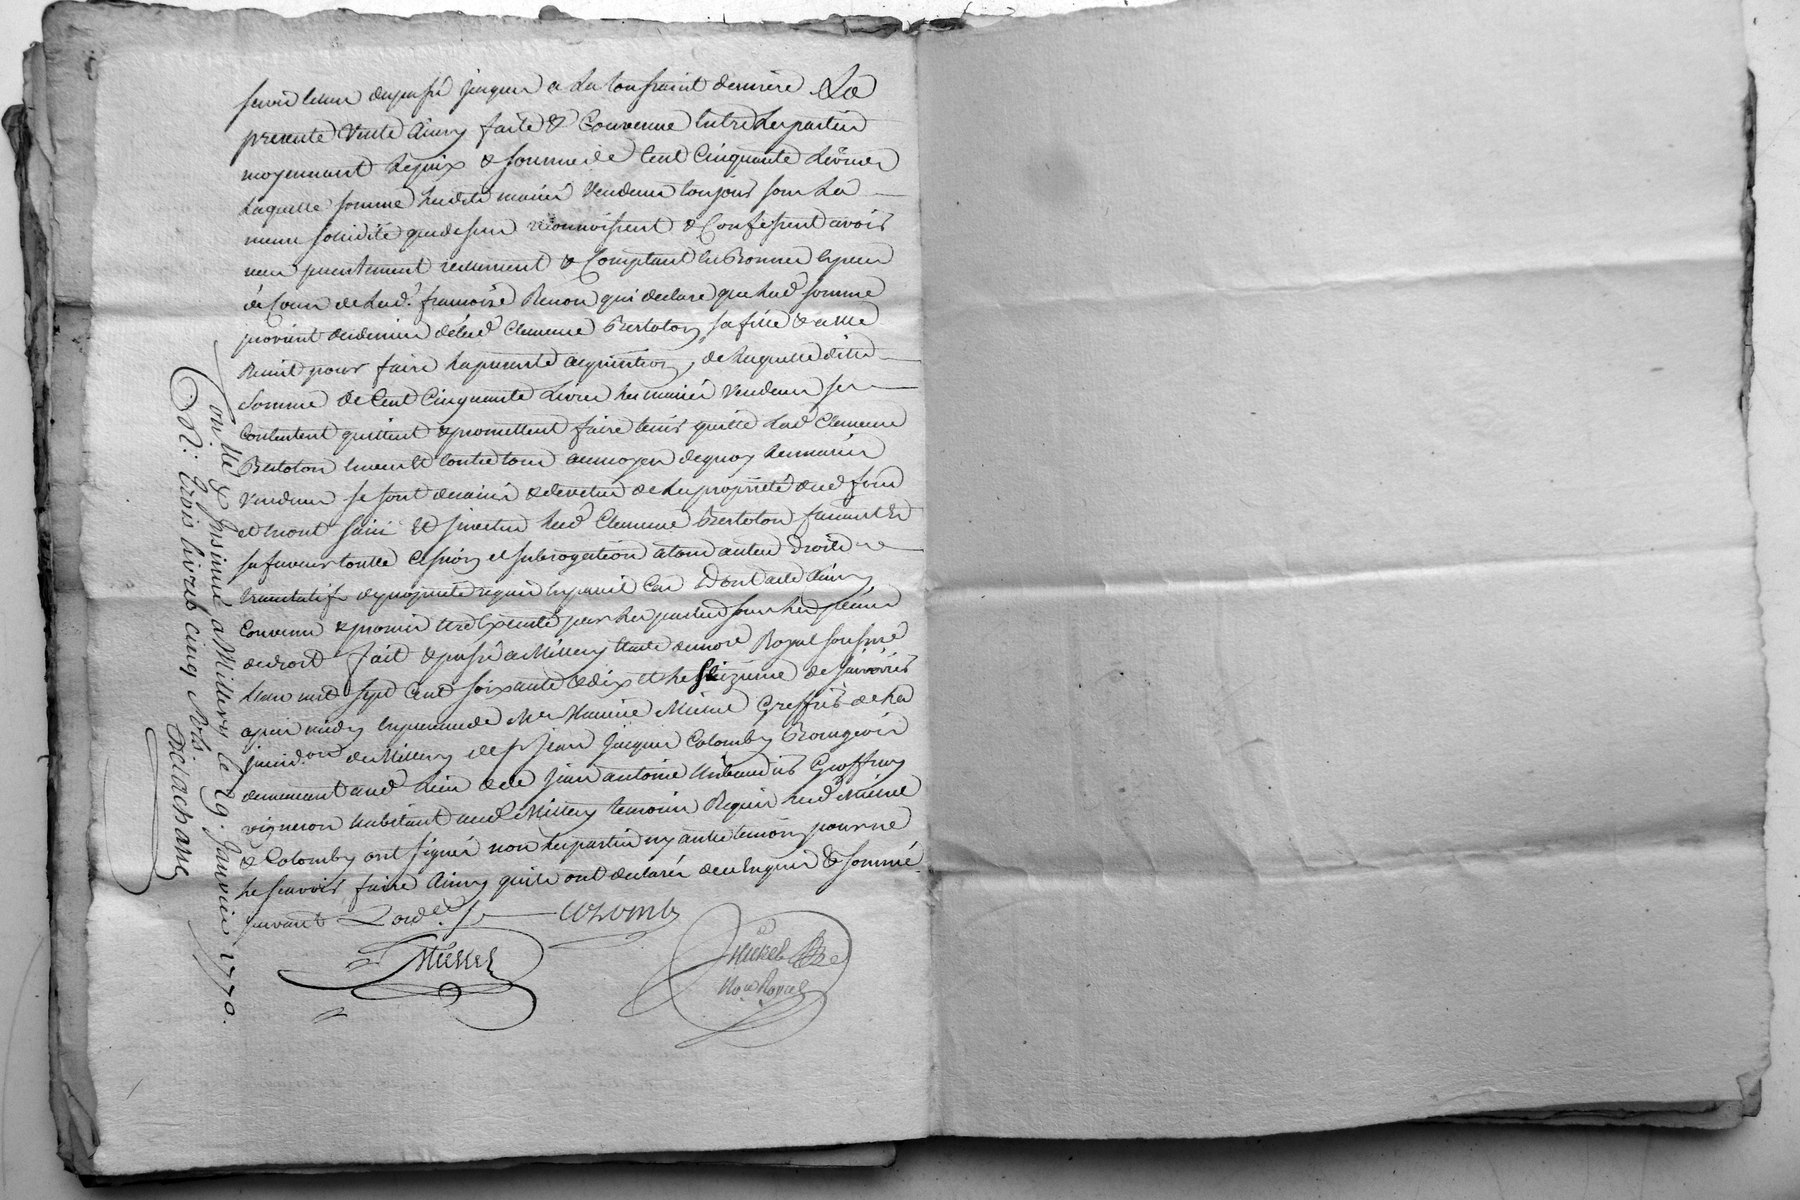 servis led. du passé jusques a la toussaint derniere La
presente vente ainsy faite & Convenue Entre les parties
moyennant le prix & somme de Cent Cinquante Livres
laquelle somme lesdits mariés vendeurs toujours sous la
meme solidité que dessus reconnoissent & Confessent avois
reçu presentement reellement & Comptant des
de lad. françoise Renon qui declare que lad somme
provient des deniers de lad Clemence Bertoton sa fille &
Remit pour faire la presente acquisition, de laquelle ditte
somme de Cent Cinquante Livres les mariés vendeurs se
Contentent quittent & promettent faire tenir quitte lad Clemence
Bertoton Envers & Contre tous au moyen de quoy les mariés
vendeurs se sont demis & devetus de la propriété dud fond
et En ont saisi & Jnvestu lad Clemence Bertoton faisant En
sa faveur toutte Cession et subrogation a tous autres droits
translatif de propriété requis En pareil Cas Dont acte Ainsy
Convenu & promis Etre Executé par les parties sous les peines
de droit fait & passé a Millery Etude du nore Royal soussigné
L'an mil sept Cent soixante & dix et le seizieme de Janvier
apres midy En presence de Me Maurice Michel Greffier de la
jurid.on de Millery & de sr Jean Jacques Colomby Bourgeois
demeurant aud lieu & de Jean antoine Geoffray
vigneron habitant aud Millery temoins Requis led Michel
& Colomby ont signés non les parties ny autre temoin pour ne
le sçavoir faire Ainsy qu'ils ont declarés de ce Enquis & sommé
suivant L'ord.ce
COLOMBy
Michel
Michel
No.re Royal
Con.llé & Jnsinué a Millery le 29. Janvier 1770.
R: trois livres cinq sols
Delachans